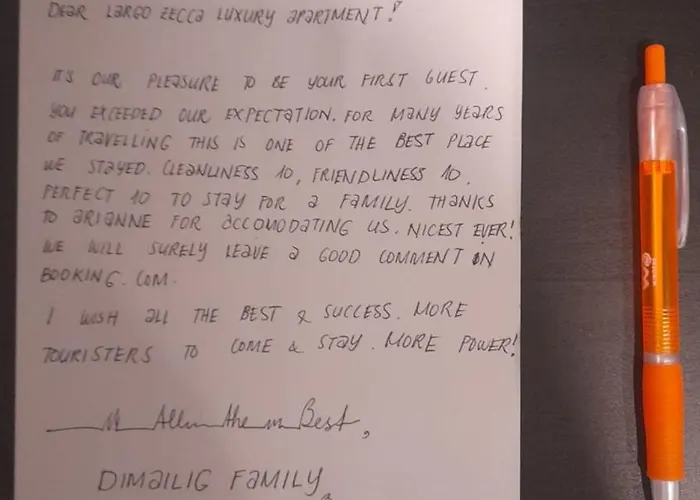 DEAR LARGO ZECCA LUXURY APARTMENT!
IT'S OUR PLEASURE TO BE YOUR FIRST GUEST.
YOU EXCEEDED OUR EXPECTATION. FOR MANY YEARS
OF TRAVELLING THIS IS ONE OF THE BEST PLACE
WE STAYED. CLEANLINESS 10, FRIENDLINESS 10,
PERFECT 10 TO STAY FOR A FAMILY. THANKS
TO ARIANNE FOR ACCOMODATING US. NICEST EVER!
WE WILL SURELY LEAVE A GOOD COMMENT IN
BOOKING.COM.
I WISH ALL THE BEST & SUCCESS. MORE
TOURISTERS TO COME & STAY. MORE POWER!
All the Best,
DIMAILIG FAMILY